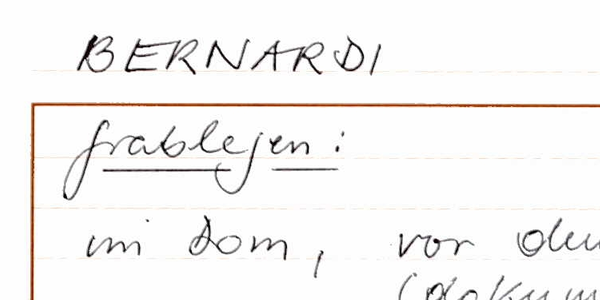 BERNARDI
Grablegen:
im Dom, vor dem
(dokum